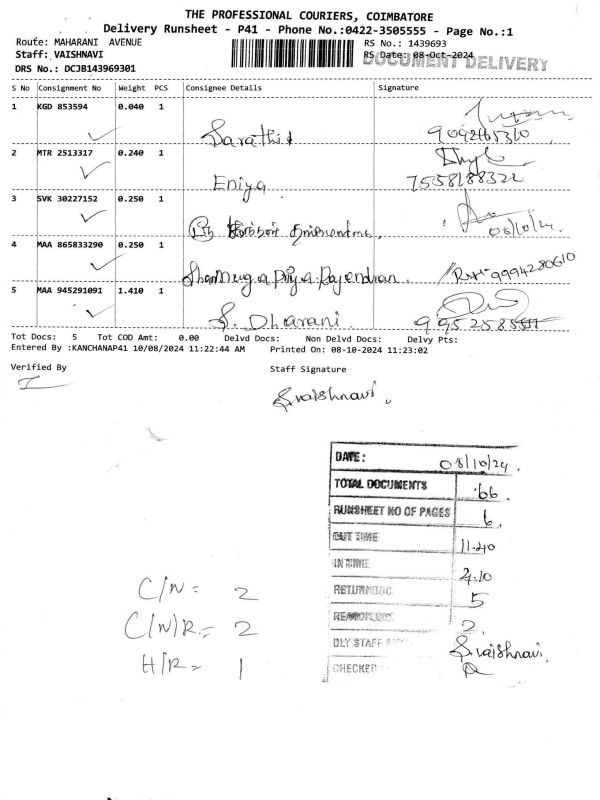 THE PROFESSIONAL COURIERS, COIMBATORE
Delivery Runsheet - P41 - Phone No.:0422-3505555 - Page No.:1
Route: MAHARANI AVENUE
RS No.: 1439693
Staff: VAISHNAVI
RS Date: 08-Oct-2024
DOCUMENT DELIVERY
DRS No.: DCJB143969301
S No Consignment No Weight PCS Consignee Details Signature
1 KGD 853594 0.040 1 Sarathi
2 MTR 2513317 0.240 1 Eniya 7558188322
3 SVK 30227152 0.250 1 08/10/24
4 MAA 865833290 0.250 1 Shanmuga Priya Rajendran 9994280610
5 MAA 945291091 1.410 1 S. Dharani
Tot Docs: 5 Tot COD Amt: 0.00 Delvd Docs: Non Delvd Docs: Delvy Pts:
Entered By :KANCHANAP41 10/08/2024 11:22:44 AM Printed On: 08-10-2024 11:23:02
Verified By Staff Signature
S.vaishnavi.
DATE: 08/10/24.
TOTAL DOCUMENTS 66.
RUNSHEET NO OF PAGES 6.
OUT TIME 11.40
IN TIME 2.10
RETURN DOC 5
2.
DLY STAFF S.vaishnavi.
CHECKER
C/N = 2
C/N/R = 2
H/R = 1